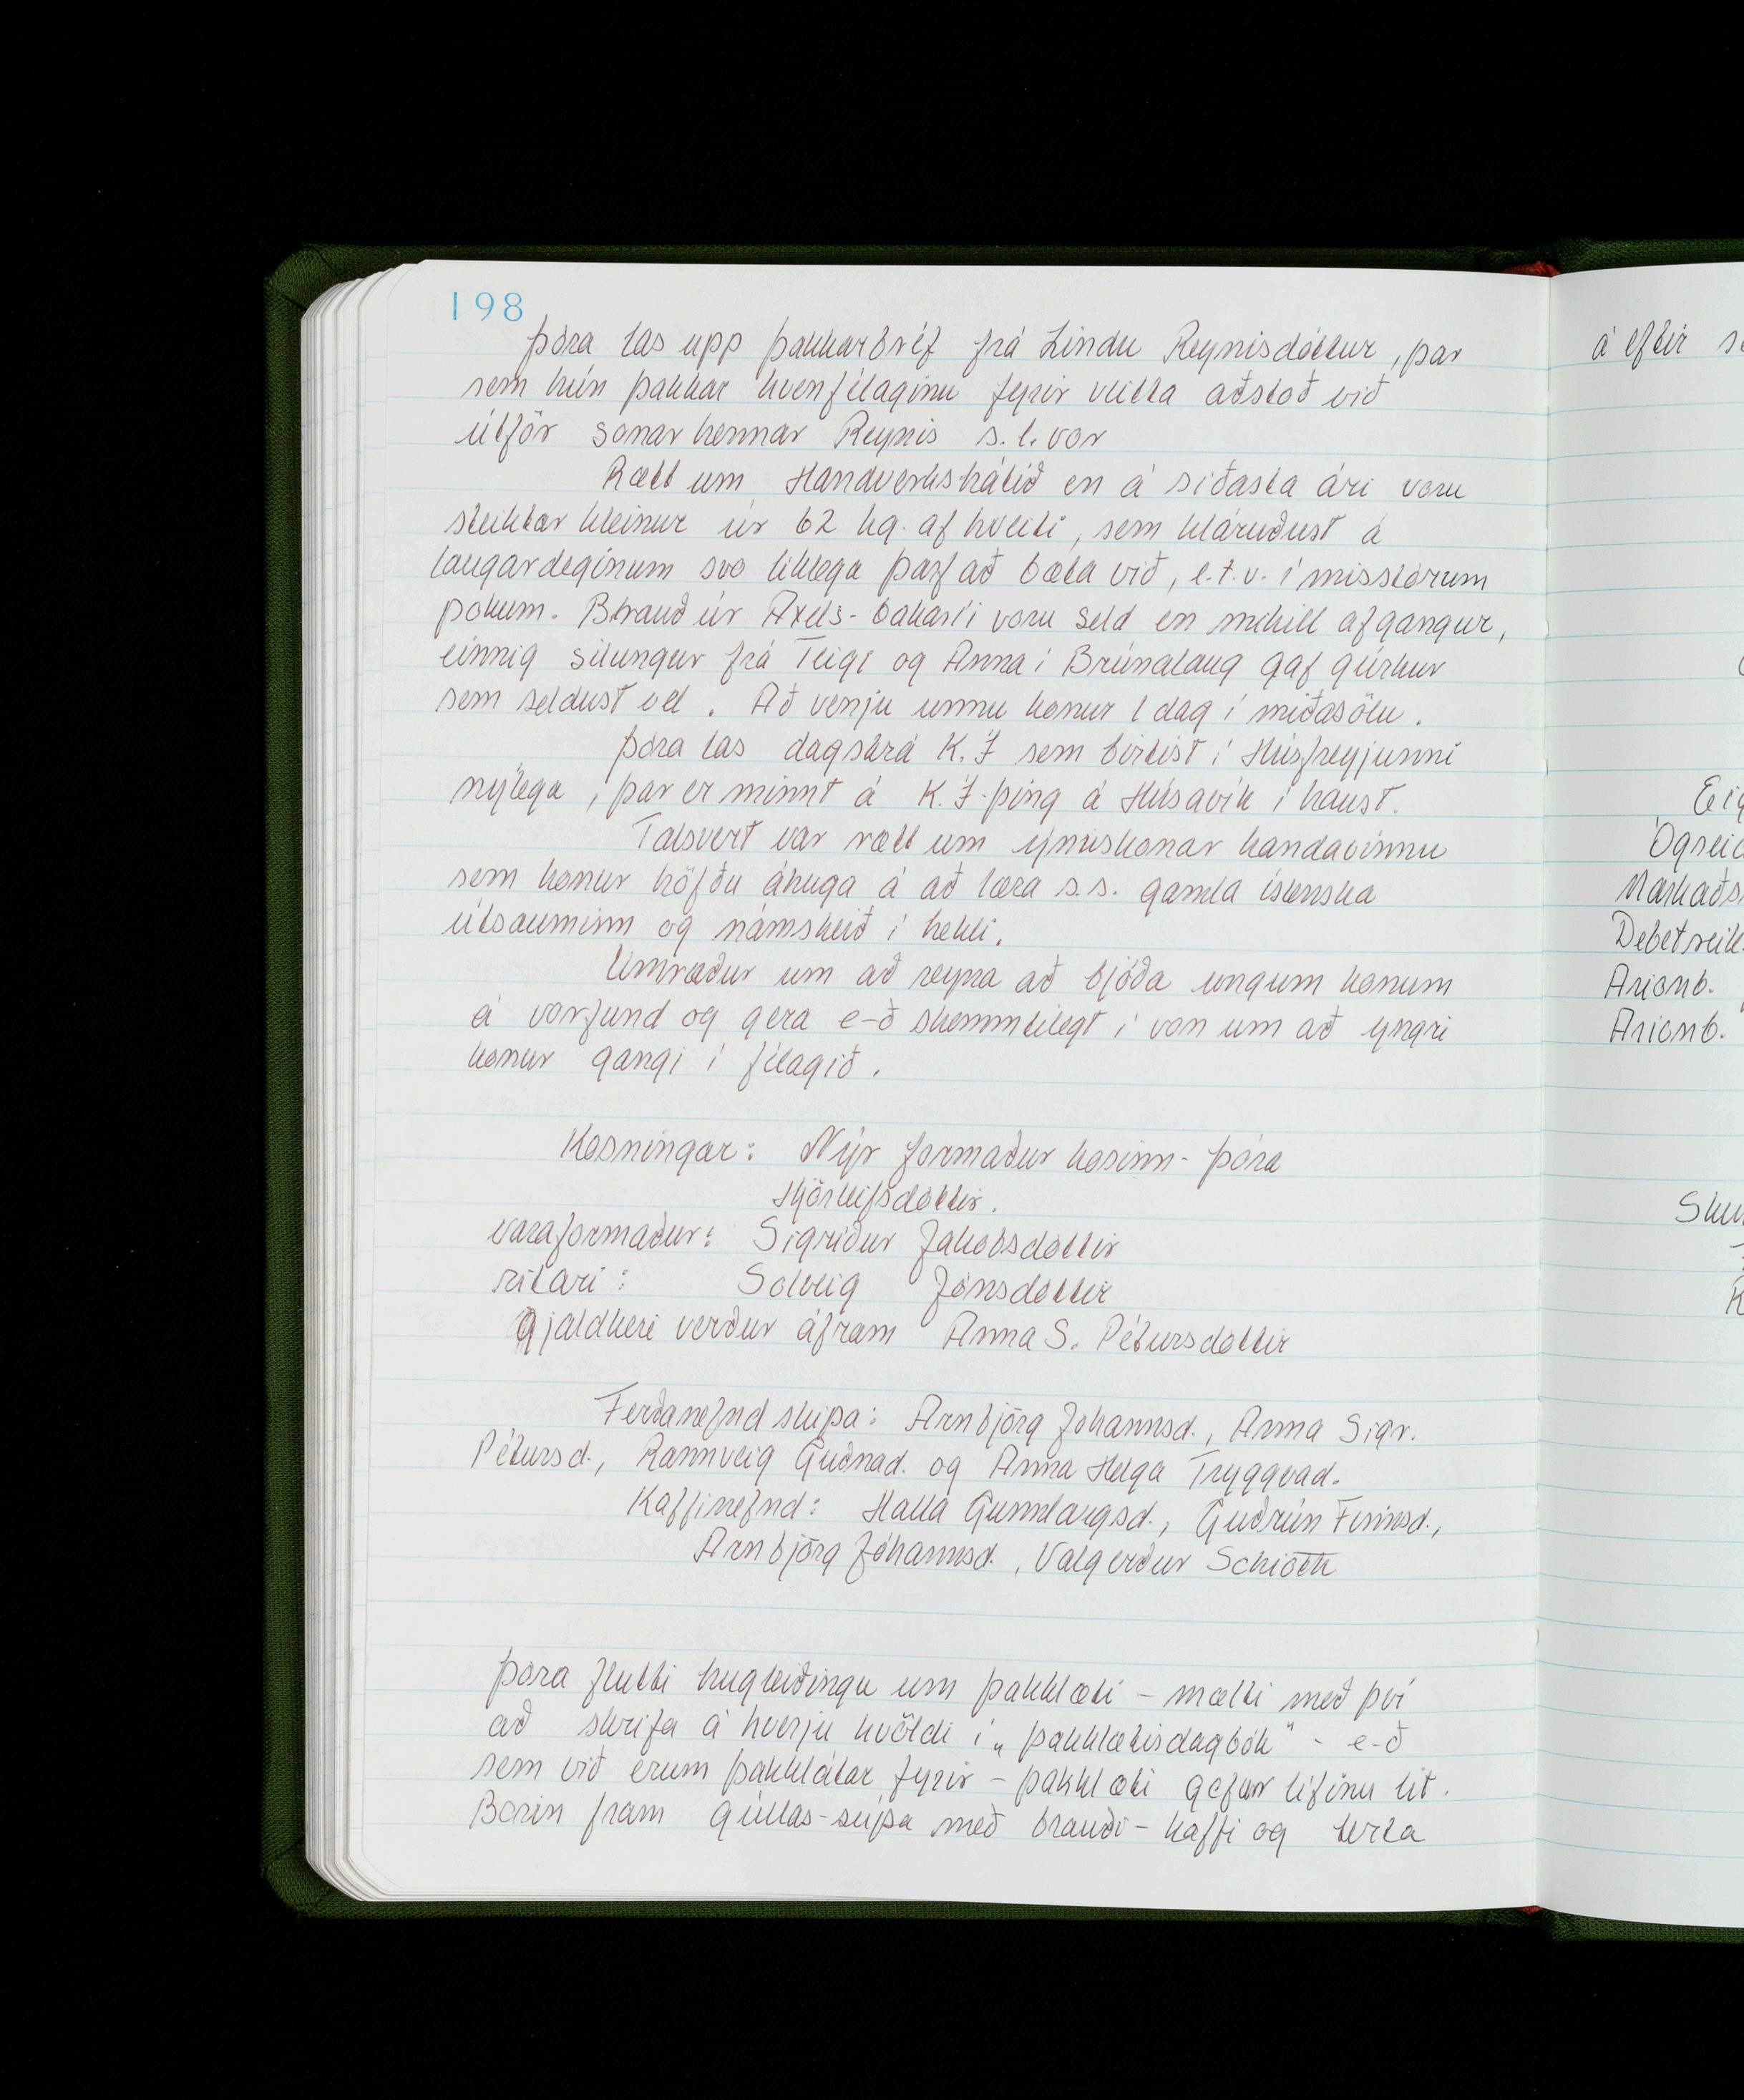 198
Þóra las upp þakkarbréf frá Lindu Reynisdóttur, þar
sem hún þakkar kvenfélaginu fyrir veitta aðstoð við
útför sonar hennar Reynis s.l. vor
Rætt um Handverkshátíð en á síðasta ári voru
steiktar kleinur úr 62 kg. af hveiti, sem kláruðust á
laugardeginum svo líklega þarf að bæta við, e.t.v. í misstórum
pokum. Brauð úr Axels-bakaríi voru seld en mikill afgangur,
einnig silungur frá Teigi og Anna í Brúnalaug gaf gúrkur
sem seldust vel. Að venju unnu konur 1 dag í miðasölu.
Þóra las dagskrá K.Í sem birtist í Húsfreyjunni
nýlega, þar er minnt á K.Í-þing á Húsavík í haust.
Talsvert var rætt um ýmiskonar handavinnu
sem konur höfðu áhuga á að læra s.s. gamla íslenska
útsauminn og námskeið í hekli.
Umræður um að reyna að bjóða ungum konum
á vorfund og gera e-ð skemmtilegt í von um að yngri
konur gangi í félagið.
Kosningar: Nýr formaður kosinn - Þóra
Hjörleifsdóttir.
varaformaður: Sigríður Jakobsdóttir
ritari: Solveig Jónsdóttir
Gjaldkeri verður áfram Anna S. Pétursdóttir
Ferðanefnd skipa: Arnbjörg Jóhannsd., Anna Sigr.
Pétursd., Rannveig Guðnad. og Anna Helga Tryggvad.
Kaffinefnd: Halla Gunnlaugsd., Guðrún Finnsd.,
Arnbjörg Jóhannsd., Valgerður Schiöth
Þóra flutti hugleiðingu um þakklæti - mælti með því
að skrifa á hverju kvöldi í „þakklætisdagbók" - e-ð
sem við erum þakklátar fyrir - þakklæti gefur lífinu lit.
Borin fram gúllas-súpa með brauði - kaffi og terta
á eftir
Markaðs
Debetreik
Arionb.
Arionb.